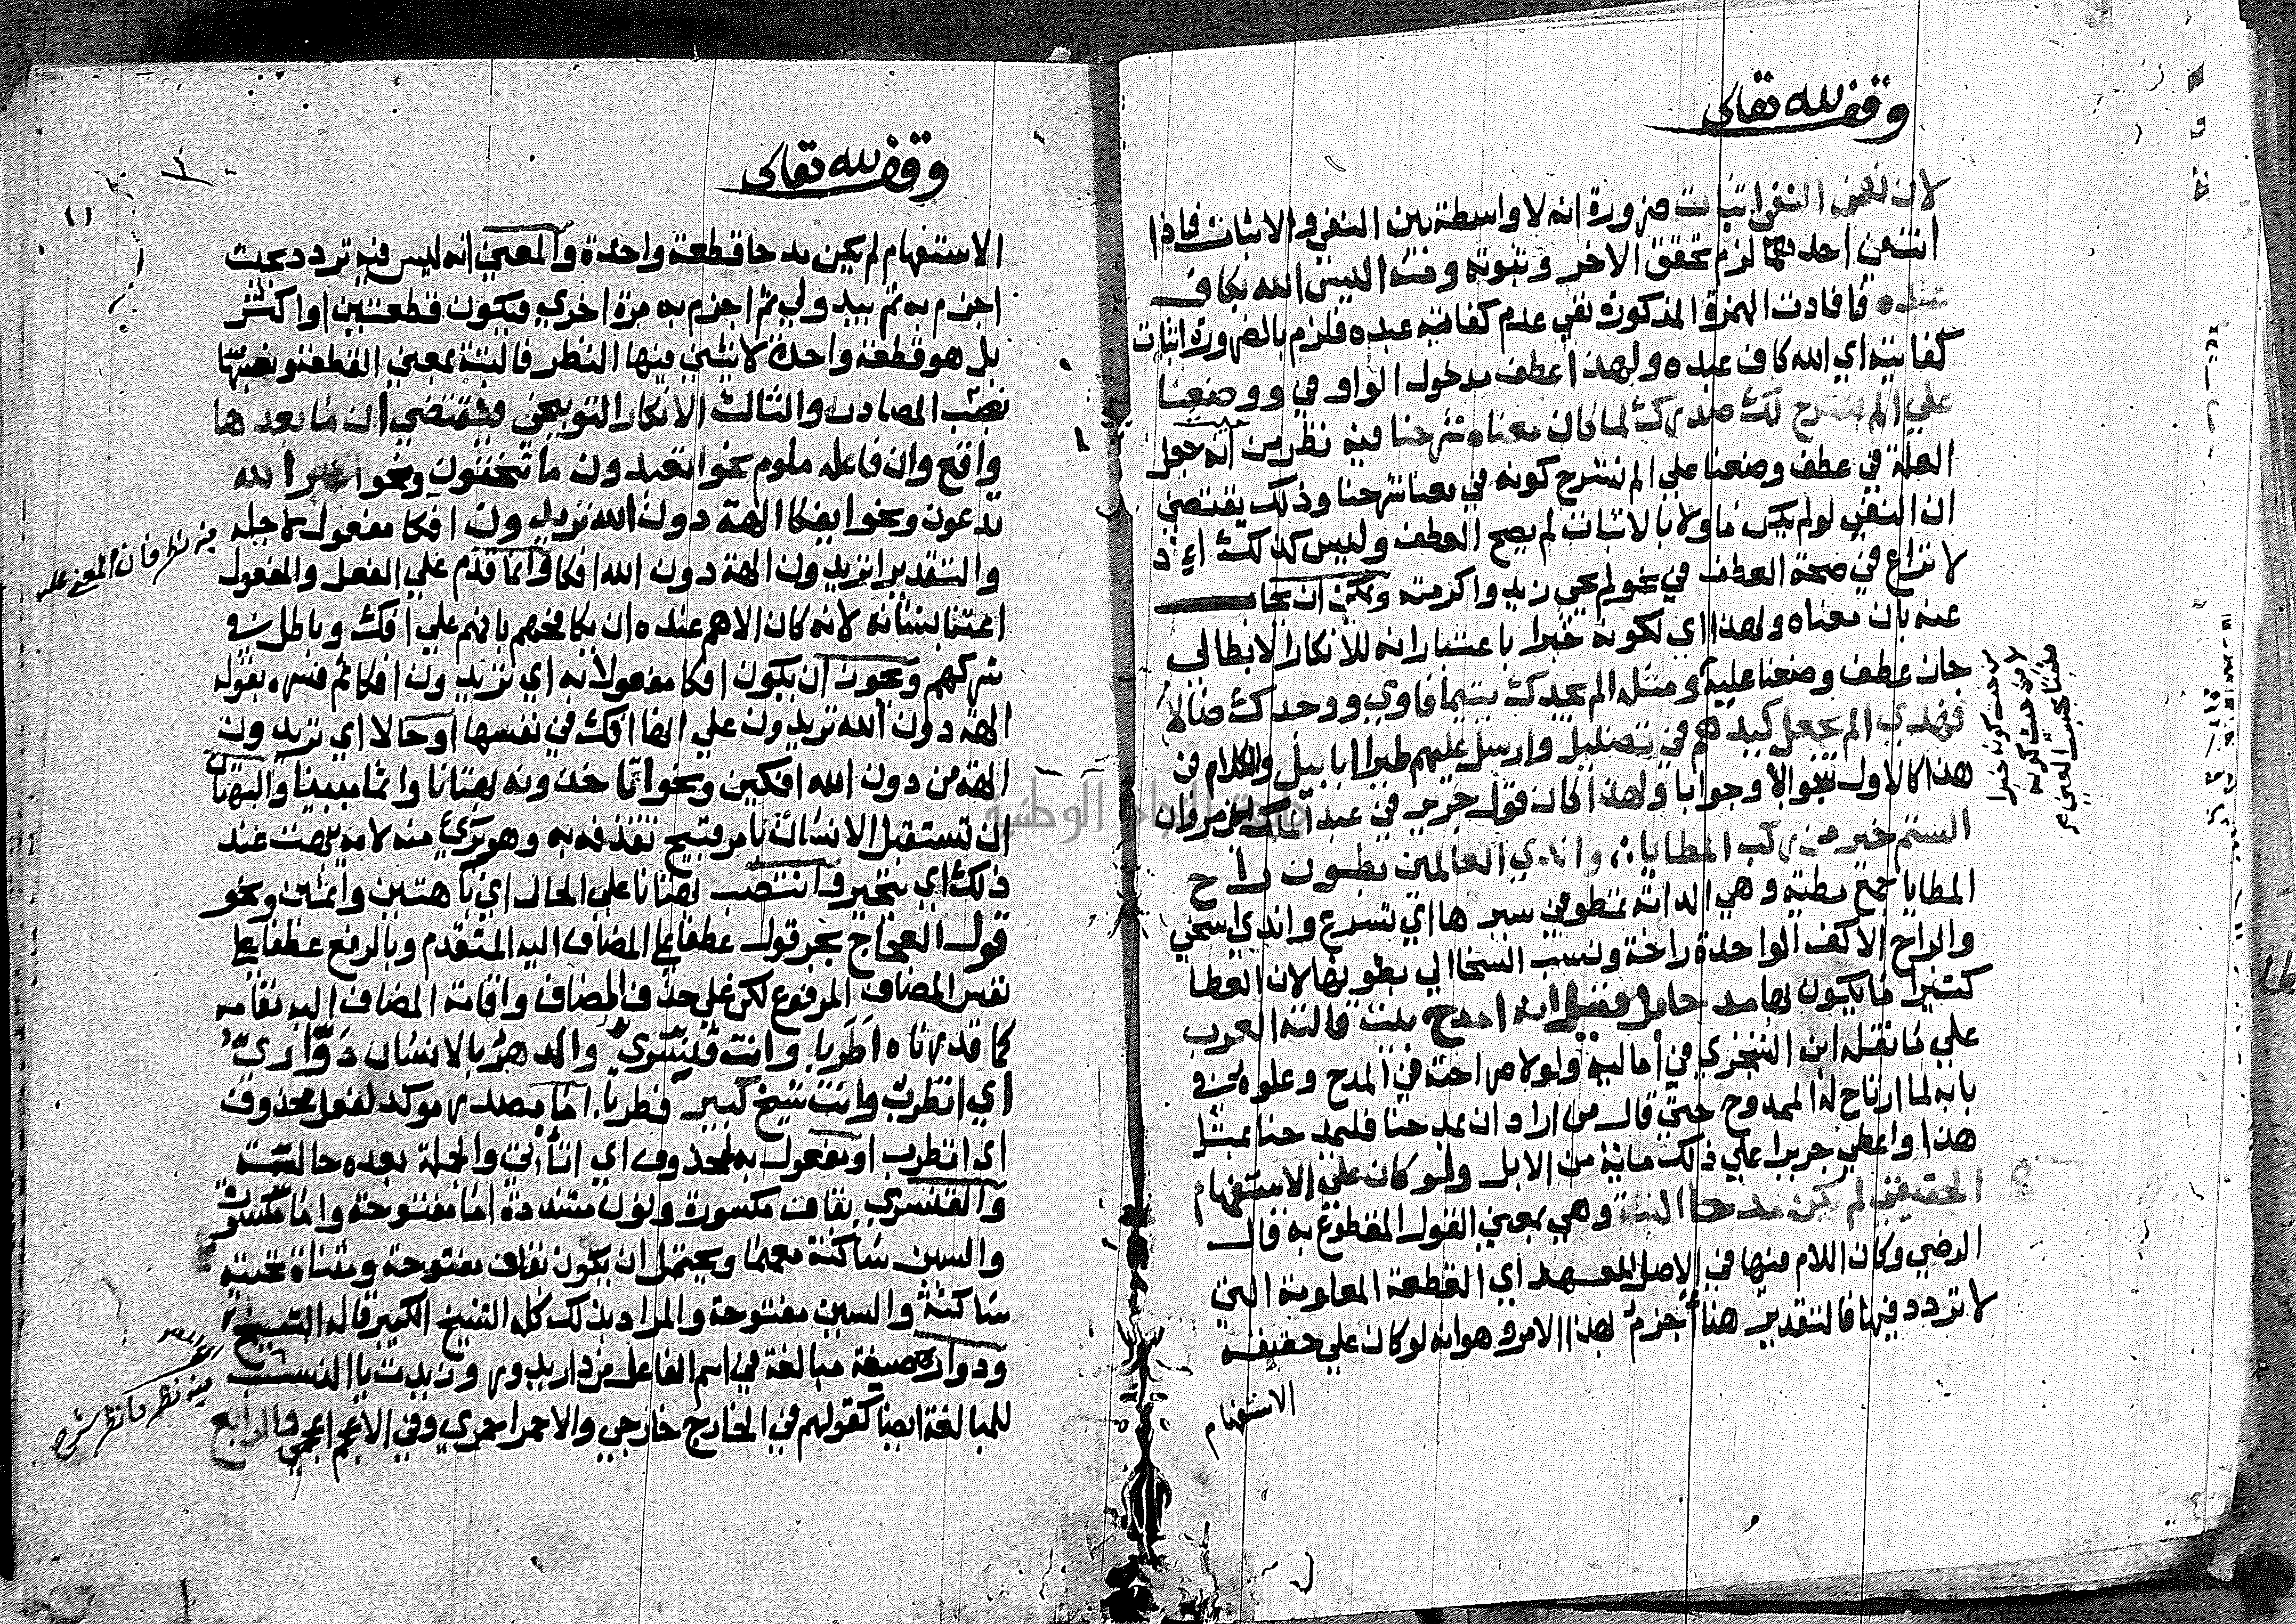 وقف لله تعالى
لان نفي النفي اثبات ضرورة انه لا واسطة بين النفي والاثبات فاذا
انتفي احدهما لزم تحقق الاخر وثبوته ومنه اليس الله بكاف
عبده فافادت الهمزة المذكورة نفي عدم كفايته عبده فلزم بالضرورة اثبات
كفايته اي الله كاف عبده ولهذا عطف مدخول الواو في ووضعنا
علي الم نشرح لك صدرك لما كان معناه شرحنا فيه نظر من حيث انه جعل
العلة في عطف وضعنا علي الم نشرح كونه في معنا شرحنا وذلك يقتضي
ان النفي لو لم يكن ماولا بالاثبات لم يصح العطف وليس كذلك اذ
لا نزاع في صحة العطف في نحو لم يجي زيد واكرمته ويمكن ان يجاب
عنه بان معناه ولهذا اي لكونه خبرا باعتبار انه للانكار الابطالي
جاز عطف وضعنا عليه ومثله الم يجدك يتيما فاوي ووجدك ضالا
فهدي الم يجعل كيدهم في تضليل وارسل عليهم طيرا ابابيل والكلام في
هذا كالاول سوالا وجوابا ولهذا كان قول جرير في عبد الملك بن مروان
الستم خير من ركب المطايا واندي العالمين بطون راح
المطايا جمع مطية وهي الدابة تمطو في سيرها اي تسرع واندي اسخي
والراح الاكف الواحدة راحة ونسب السخا الي بطونها لان العطا
كثيرا ما يكون بها مدحا بل قيل انه امدح بيت قالته العرب
علي ما نقله ابن الشجري في اماليه ولولا صراحته في المدح وعلوه في
بابه لما ارتاح له الممدوح حتي قال من اراد ان يمدحنا فليمدحنا بمثل
هذا واعطي جريرا علي ذلك مائة من الابل ولو كان علي الاستفهام
الحقيقي لم يكن مدحا البتة وهي بمعني القول المقطوع به قال
الرضي وكان اللام فيها في الاصل للعهد اي القطعة المعلومة التي
لا تردد فيها فالتقدير هنا اجزم بهذا الامر وهو انه لو كان علي حقيقة
الاستفهام
من حيث كونه خبرا
لا من حيث كونه
وقف لله تعالى
الاستفهام لم يكن مدحا قطعة واحدة والمعني انه ليس فيه تردد بحيث
اجزم به ثم يبدو لي ثم اجزم به مرة اخري فيكون قطعتين او اكثر
بل هو قطعة واحدة لا يثني فيها النظر فالبتة بمعني القطعة ونصبها
نصب المصادر والثالث الانكار التوبيخي فيقتضي ان ما بعدها
واقع وان فاعله ملوم نحو اتعبدون ما تنحتون ونحو اغير الله
تدعون ونحو ايفكا الهة دون الله تريدون افكا مفعول لاجله
والتقدير اتريدون الهة دون الله افكا وانما قدم علي الفعل والمفعول
اعتنا بشانه لانه كان الاهم عنده ان يكافحهم بانهم علي افك وباطل في
شركهم ويجوز ان يكون افكا مفعولا به اي تريدون افكا ثم فسره بقوله
الهة دون الله تريدون علي انها افك في نفسها او حالا اي تريدون
الهة من دون الله افكين ونحو اتاخذونه بهتانا واثما مبينا والبهتان
ان تستقبل الانسان بامر قبيح تقذفه به وهو بريء منه لانه يبهت عند
ذلك اي يتحير وانتصب بهتانا علي الحال اي باهتين واثمين ونحو
قول العجاج بجر قول عطفا علي المضاف اليه المتقدم وبالرفع عطفا علي
نفس المضاف المرفوع لكن علي حذف المضاف واقامة المضاف اليه مقامه
كما قدرناه اطربا وانت قنسري والدهر بالانسان دواري
اي اتطرب وانت شيخ كبير فطربا اما مصدر موكد لفعل محذوف
اي اتطرب او مفعول به لمحذوف اي اتأتي والجملة بعده حالية
والقنسري بقاف مكسورة ونون مشددة اما مفتوحة واما مكسورة
والسين ساكنة معهما ويحتمل ان يكون بقاف مفتوحة ومثناة تحتية
ساكنة والسين مفتوحة والمراد بذلك كله الشيخ الكبير قاله الشيخ
ودوار صيغة مبالغة في اسم الفاعل من دار يدور وزيدت يا النسب
للمبالغة ايضا كقولهم في الخارج خارجي والاحمر احمري وفي الاعجم اعجمي والرابع
فيه نظر فان المعني عليه
فيه نظر فانظر